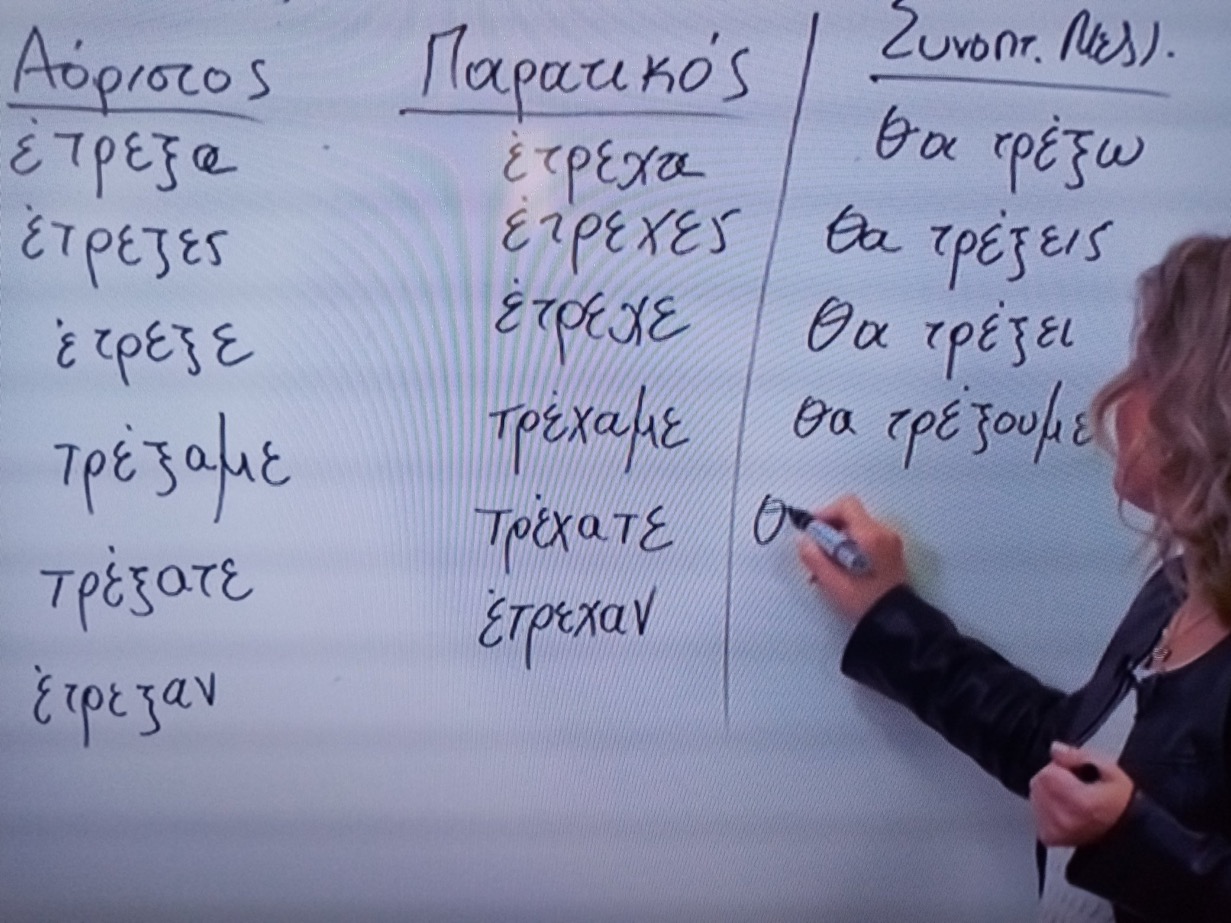 Αόριστος
έτρεξα
έτρεξες
έτρεξε
τρέξαμε
τρέξατε
έτρεξαν
Παρατικός
έτρεχα
έτρεχες
έτρεχε
τρέχαμε
τρέχατε
έτρεχαν
Συνοπτ. Μελλ.
θα τρέξω
θα τρέξεις
θα τρέξει
θα τρέξουμε
θ